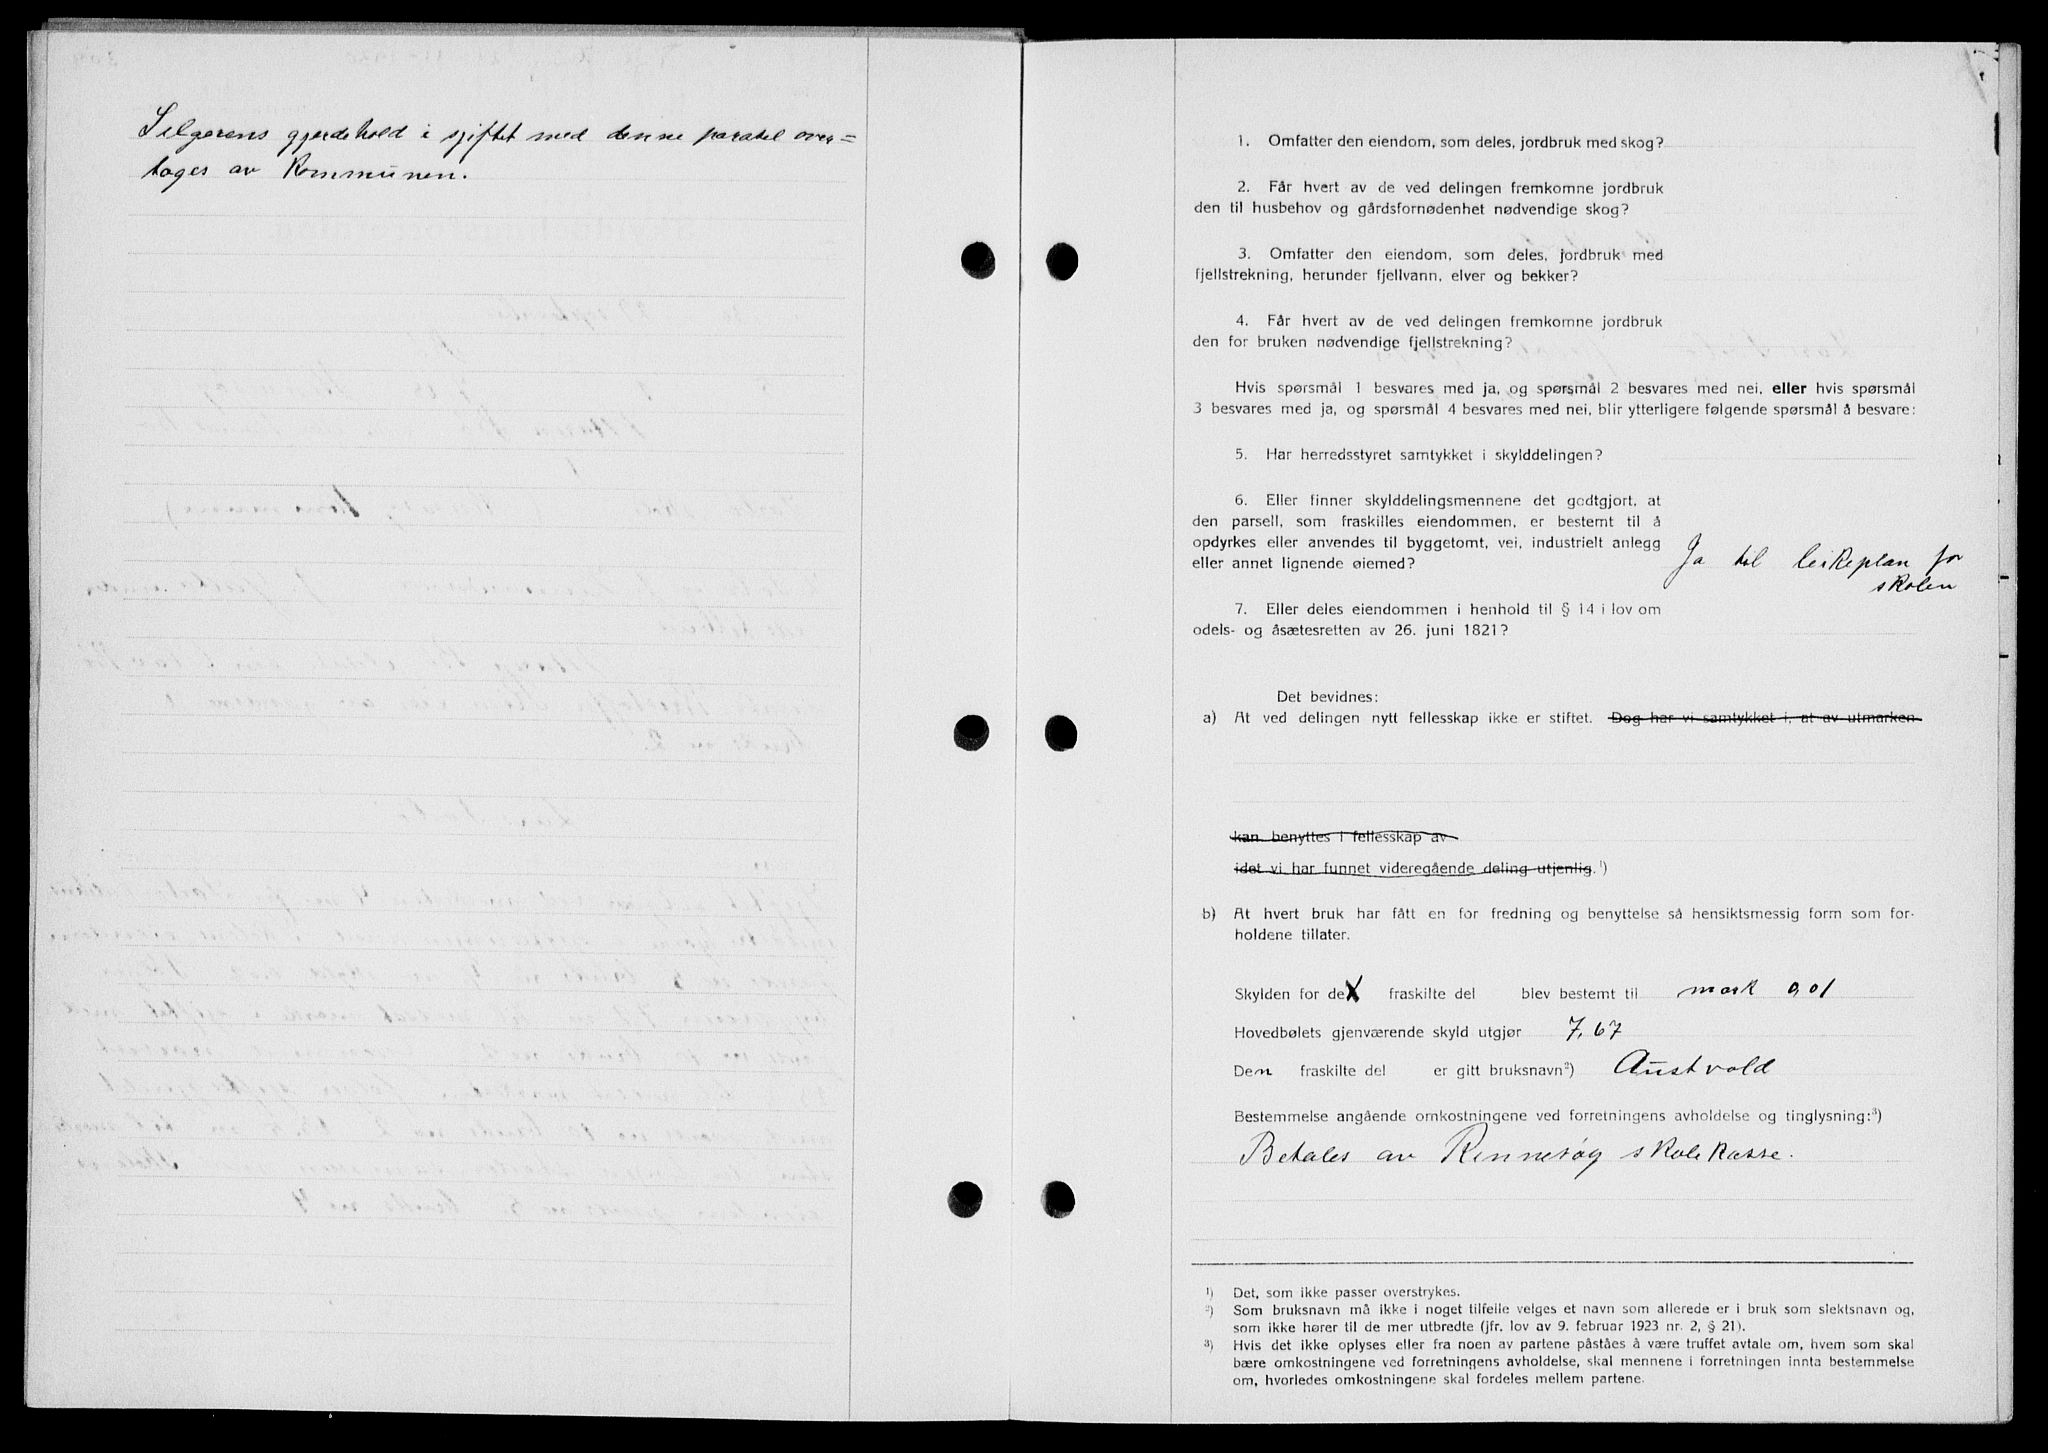 Selgerens gjerdehold i sjiftet med denne parsel over=
tages av Kommunen.
1. Omfatter den eiendom, som deles, jordbruk med skog?
2. Får hvert av de ved delingen fremkomne jordbruk
den til husbehov og gårdsfornødenhet nødvendige skog?
3. Omfatter den eiendom, som deles, jordbruk med
fjellstrekning, herunder fjellvann, elver og bekker?
4. Får hvert av de ved delingen fremkomne jordbruk
den for bruken nødvendige fjellstrekning?
Hvis spørsmål 1 besvares med ja, og spørsmål 2 besvares med nei, eller hvis spørsmål
3 besvares med ja, og spørsmål 4 besvares med nei, blir ytterligere følgende spørsmål å besvare:
5. Har herredsstyret samtykket i skylddelingen?
6. Eller finner skylddelingsmennene det godtgjort, at
den parsell, som fraskilles eiendommen, er bestemt til å
opdyrkes eller anvendes til byggetomt, vei, industrielt anlegg
eller annet lignende øiemed? Ja til leikeplan for
skolen
7. Eller deles eiendommen i henhold til § 14 i lov om
odels- og åsætesretten av 26. juni 1821?
Det bevidnes:
a) At ved delingen nytt fellesskap ikke er stiftet. Dog har vi samtykket i, at av utmarken
kan benyttes i fellesskap av
idet vi har funnet videregående deling utjenlig.¹)
b) At hvert bruk har fått en for fredning og benyttelse så hensiktsmessig form som for-
holdene tillater.
Skylden for de fraskilte del blev bestemt til mark 0,01
Hovedbølets gjenværende skyld utgjør 7,67
Den fraskilte del er gitt bruksnavn²) Austvold
Bestemmelse angående omkostningene ved forretningens avholdelse og tinglysning:³)
Betales av Rennesøg skolekasse.
¹) Det, som ikke passer overstrykes.
²) Som bruksnavn må ikke i noget tilfelle velges et navn som allerede er i bruk som slektsnavn og,
som ikke hører til de mer utbredte (jfr. lov av 9. februar 1923 nr. 2, § 21).
³) Hvis det ikke oplyses eller fra noen av partene påståes å være truffet avtale om, hvem som skal
bære omkostningene ved forretningens avholdelse, skal mennene i forretningen innta bestemmelse
om, hvorledes omkostningene skal fordeles mellem partene.